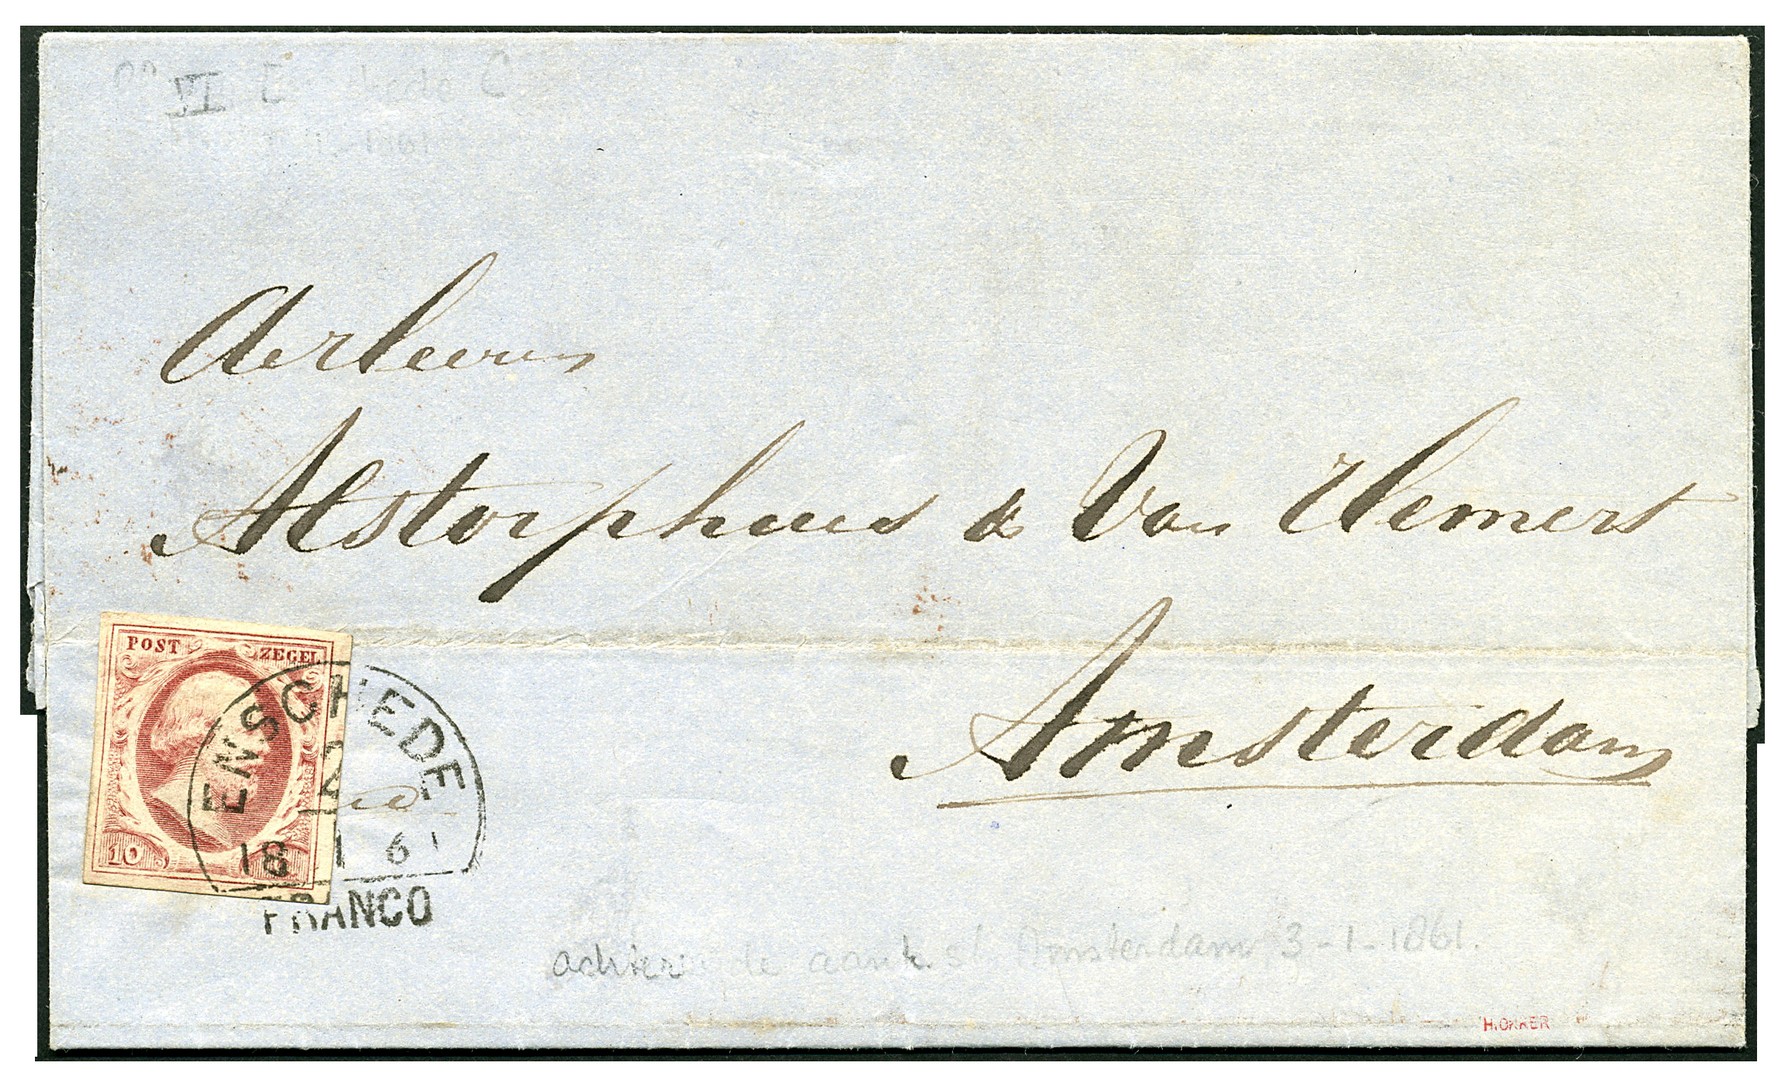 VI
De Heeren
Alstorphius & Van Hemert
Amsterdam
POST ZEGEL
10
ENSCHEDE
2
18 1 61
FRANCO
achter de aank st Amsterdam 3-1-1861.
H.ONKER